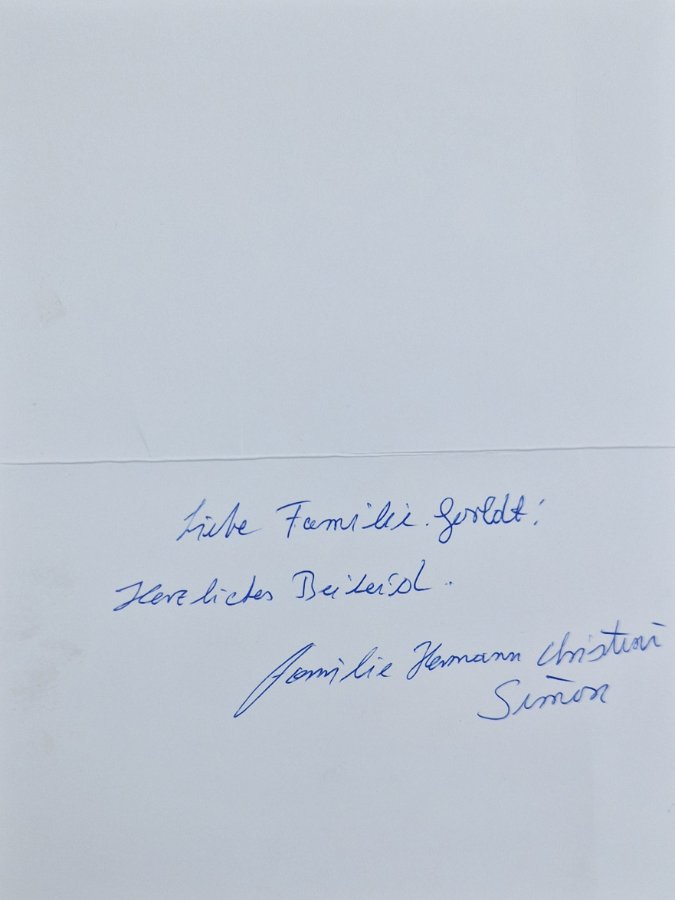 Liebe Familie Geroldt!
Herzliches Beileid.
Familie Hermann Christine
Simon